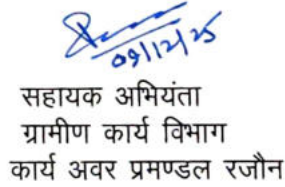 09/12/25
सहायक अभियंता
ग्रामीण कार्य विभाग
कार्य अवर प्रमण्डल रजौन